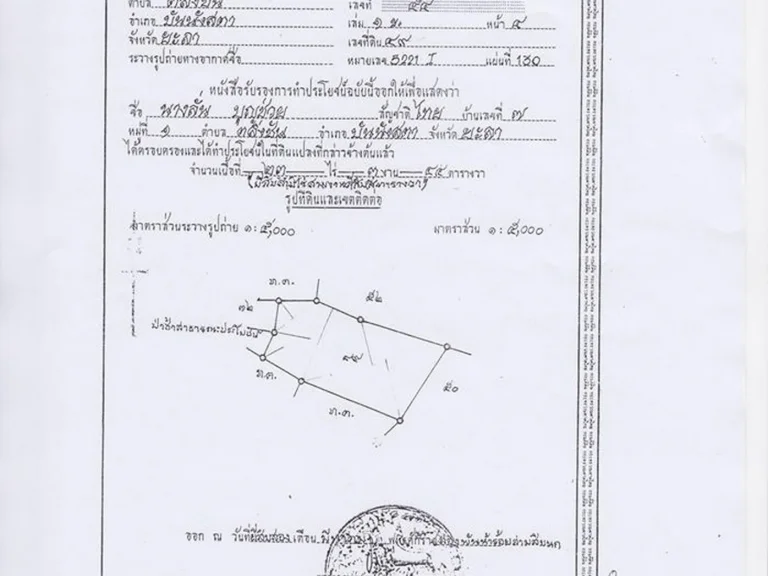 ตำบล ตลิ่งชัน เลขที่ ๕๔
อำเภอ บันนังสตา เล่ม ๑ ข. หน้า ๔
จังหวัด ยะลา เลขที่ดิน ๔๙
ระวางรูปถ่ายทางอากาศชื่อ หมายเลข 5221 I แผ่นที่ 130
หนังสือรับรองการทำประโยชน์ฉบับนี้ออกให้เพื่อแสดงว่า
ชื่อ นางลั่น บุญช่วย สัญชาติ ไทย บ้านเลขที่ ๗
หมู่ที่ ๑ ตำบล ตลิ่งชัน อำเภอ บันนังสตา จังหวัด ยะลา
ได้ครอบครองและได้ทำประโยชน์ในที่ดินแปลงที่กล่าวข้างต้นแล้ว
จำนวนเนื้อที่ ๒๓ ไร่ ๓ งาน ๕๕ ตารางวา
(ยี่สิบสามไร่สามงานห้าสิบห้าตารางวา)
รูปที่ดินและเขตติดต่อ
มาตราส่วนระวางรูปถ่าย ๑ : ๕,๐๐๐ มาตราส่วน ๑ : ๕,๐๐๐
ท.ค.
๓๒ ๕๒
ป่าช้าสาธารณะประโยชน์
๔๙
ท.ค. ๕๐
ท.ค.
ออก ณ วันที่ยี่สิบสอง เดือน พุทธศักราช สองพันห้าร้อยสามสิบหก